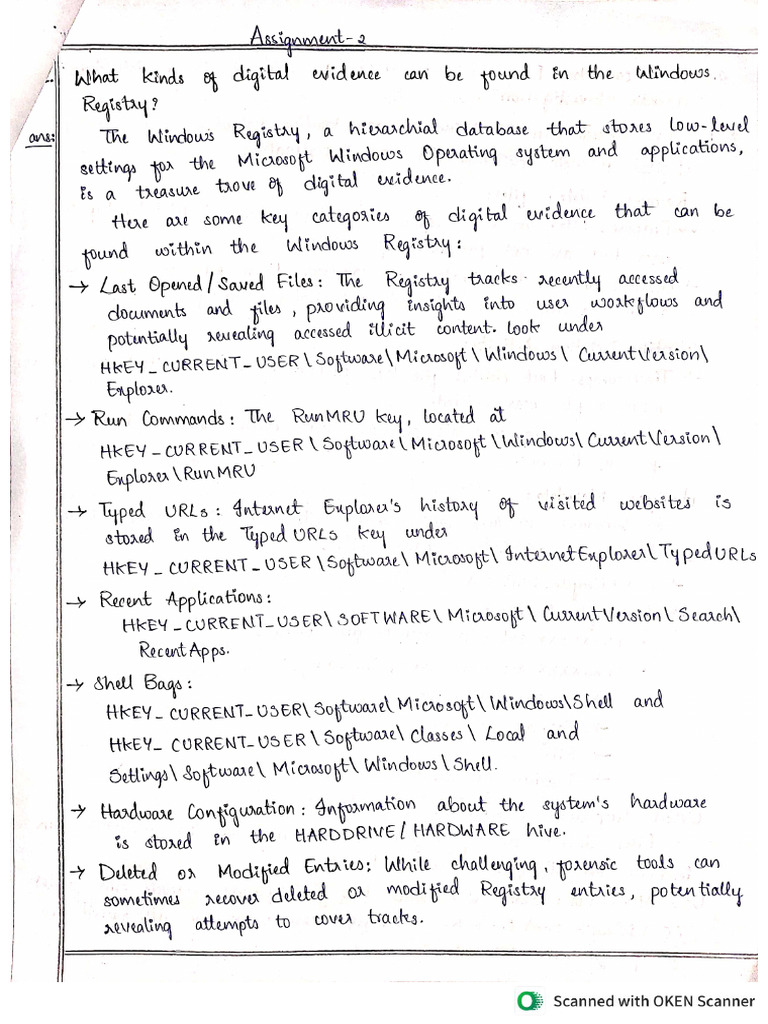 Assignment-2
What kinds of digital evidence can be found in the Windows
Registry?
ans:
The Windows Registry, a hierarchial database that stores low-level
settings for the Microsoft Windows Operating system and applications,
is a treasure trove of digital evidence.
Here are some key categories of digital evidence that can be
found within the Windows Registry:
→ Last Opened/Saved Files: The Registry tracks recently accessed
documents and files, providing insights into user workflows and
potentially revealing accessed illicit content. look under
HKEY_CURRENT-USER\Software\Microsoft\Windows\CurrentVersion\
Explorer.
→ Run Commands: The RunMRU key, located at
HKEY-CURRENT_USER\Software\Microsoft\Windows\CurrentVersion\
Explorer\RunMRU
→ Typed URLs: Internet Explorer's history of visited websites is
stored in the Typed URLs key under
HKEY_CURRENT_USER\Software\Microsoft\InternetExplorer\TypedURLs
→ Recent Applications:
HKEY-CURRENT-USER\SOFTWARE\Microsoft\CurrentVersion\Search\
RecentApps.
→ Shell Bags:
HKEY-CURRENT-USER\Software\Microsoft\Windows\Shell and
HKEY_CURRENT-USER\Software\Classes\Local and
Settings\Software\Microsoft\Windows\Shell.
→ Hardware Configuration: Information about the system's hardware
is stored in the HARDDRIVE/HARDWARE hive.
→ Deleted or Modified Entries: While challenging, forensic tools can
sometimes recover deleted or modified Registry entries, potentially
revealing attempts to cover tracks.
Scanned with OKEN Scanner